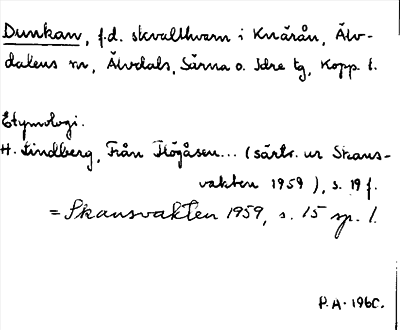 Dunkan, f.d. skvaltkvarn i Knärån, Älv-
dalens sn, Älvdals, Särna o. Idre tg, Kopp l.
Etymologi.
H. Lindberg, Från Högåsen... (särtr. ur Skans-
vakten 1959), s. 19 f.
= Skansvakten 1959, s. 15 sp. 1.
P.A. 1960.